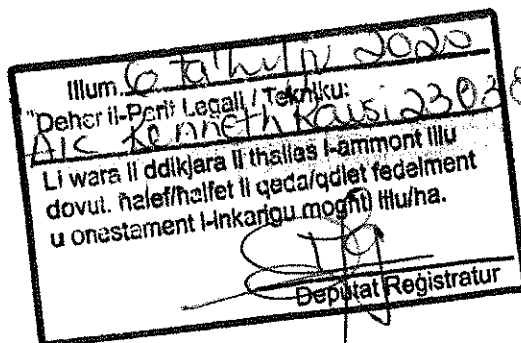 Illum 6 ta' Lulju 2020
"Deher il-Perit Legali / Tekniku:
AIC Kenneth
Li wara li ddikjara li thallas l-ammont lilu
dovut. ħalef/ħalfet li qeda/qdiet fedelment
u onestament l-inkarigu mogħti lilu/ha.
Deputat Reġistratur